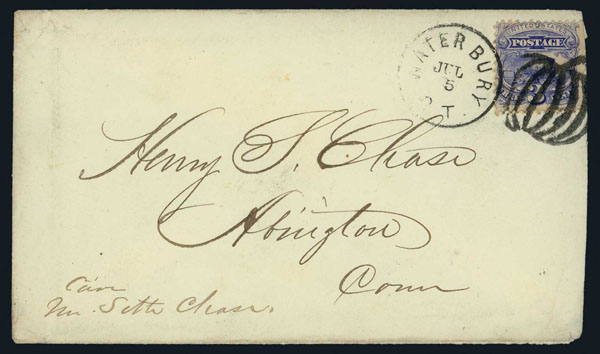 WATERBURY
JUL
5
T.
UNITED STATES
POSTAGE
Henry S. Chase
Abington
Conn
Care
Mr. Seth Chase.